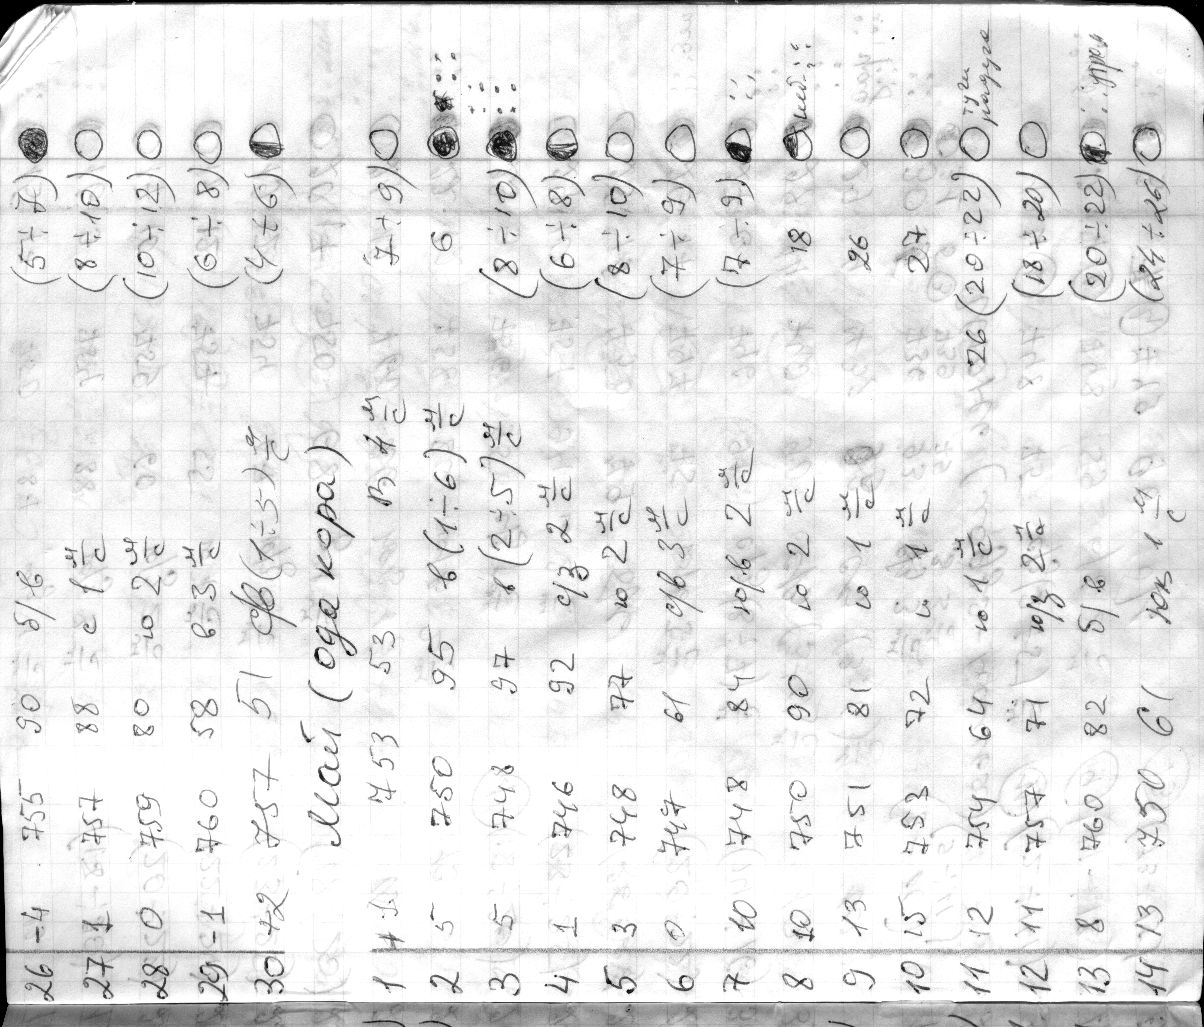 26 -4 755 90 б/в (5÷7)
27 1 757 88 с 1 м/с (8÷10)
28 0 759 80 ю 2 м/с (10÷12)
29 -1 760 58 в 3 м/с (6÷8)
30 +2 757 51 с/в (1÷5) м/с (4÷6)
Май ( кора)
1 753 53 В 4 м/с 7÷9)
2 5 750 95 в (1÷6) м/с 6
3 5 748 97 в (2÷5) м/с (8÷10)
4 1 746 92 с/з 2 м/с (6÷8)
5 3 748 77 ю 2 м/с (8÷10)
6 0 747 61 с/в 3 м/с (7÷9)
7 10 748 84 ю/в 2 м/с (7÷9)
8 10 750 90 ю 2 м/с 18
9 13 751 81 ю 1 м/с 26
10 15 753 72 ю 1 м/с 27
11 12 754 64 ю 1 м/с 26 (20÷22) радуга
12 11 757 71 ю/з 2 м/с (18÷20)
13 8 760 82 б/в (20÷22) утром
14 13 750 61 1 м/с (24÷26)